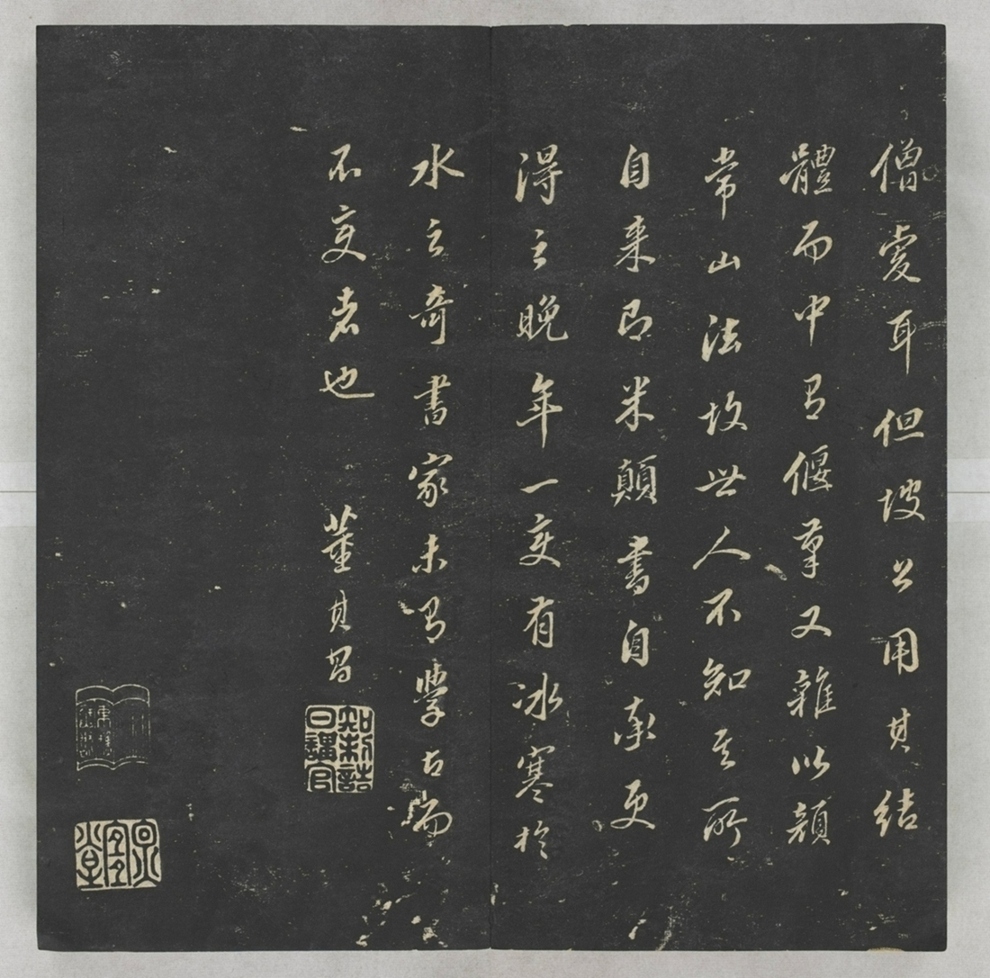 僧虔耳但坡公用其結
體而中有偃筆又雜以顏
常山法故世人不知其所
自来即米顛書自率更
得之晚年一变有冰寒於
水之奇書家未有學古而
不变者也 董其昌
知制誥
日講官